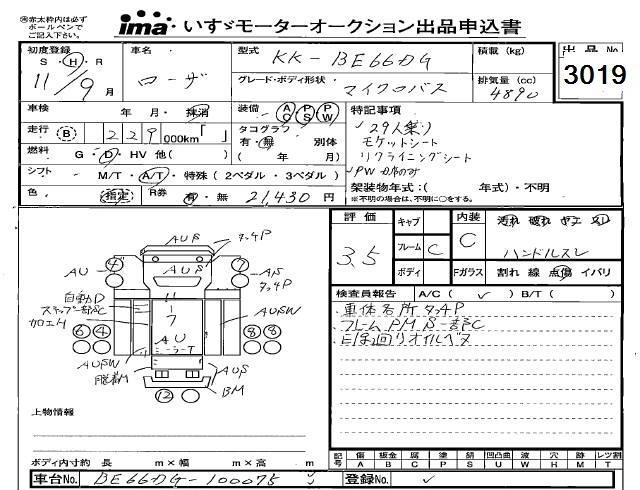 赤太枠内は必ず
ボールペンで
ご記入下さい。
ima いすゞモーターオークション出品申込書
初度登録 S・H・R 11/9月
車名 ローザ
型式 KK-BE66DG
グレード・ボディ形状 マイクロバス
積載 (kg)
排気量 (cc) 4890
出品No.
3019
車検 年 月・抹消
装備 AC PS PW
走行 B 229,000km「 」
タコグラフ 有・無 別体
( 年 月)
燃料 G・D・HV 他( )
シフト M/T・A/T・特殊 (2ペダル・3ペダル)
色 指定 R券 有・無 21,430 円
特記事項
29人乗り
モケットシート
リクライニングシート
架装物年式:( 年式)・不明
※不明の場合は、不明に○をする。
評価 3.5
キャブ
フレーム C
ボディ
内装 C
汚れ 破れ ヤニ
Fガラス 割れ 線 点傷 イバリ
検査員報告 A/C( ) B/T( )
車体各所タ4P
フレームPM S一部C
AUS
タ4P
AU
4
7
AS
タ4P
自動D
ステップ一部C
加工M
11
7
AU
ミラーT
AUSW
6 4
8 8
AUSW
AUS
脱着M
BM
12
上物情報
ボディ内寸約 長 m×幅 m×高 m
記号 傷 板金 腐 塗 錆 凹凸曲 波 穴 跡 レツ割
A B C P S U W H M T
車台No. BE66DG-100075
登録No.